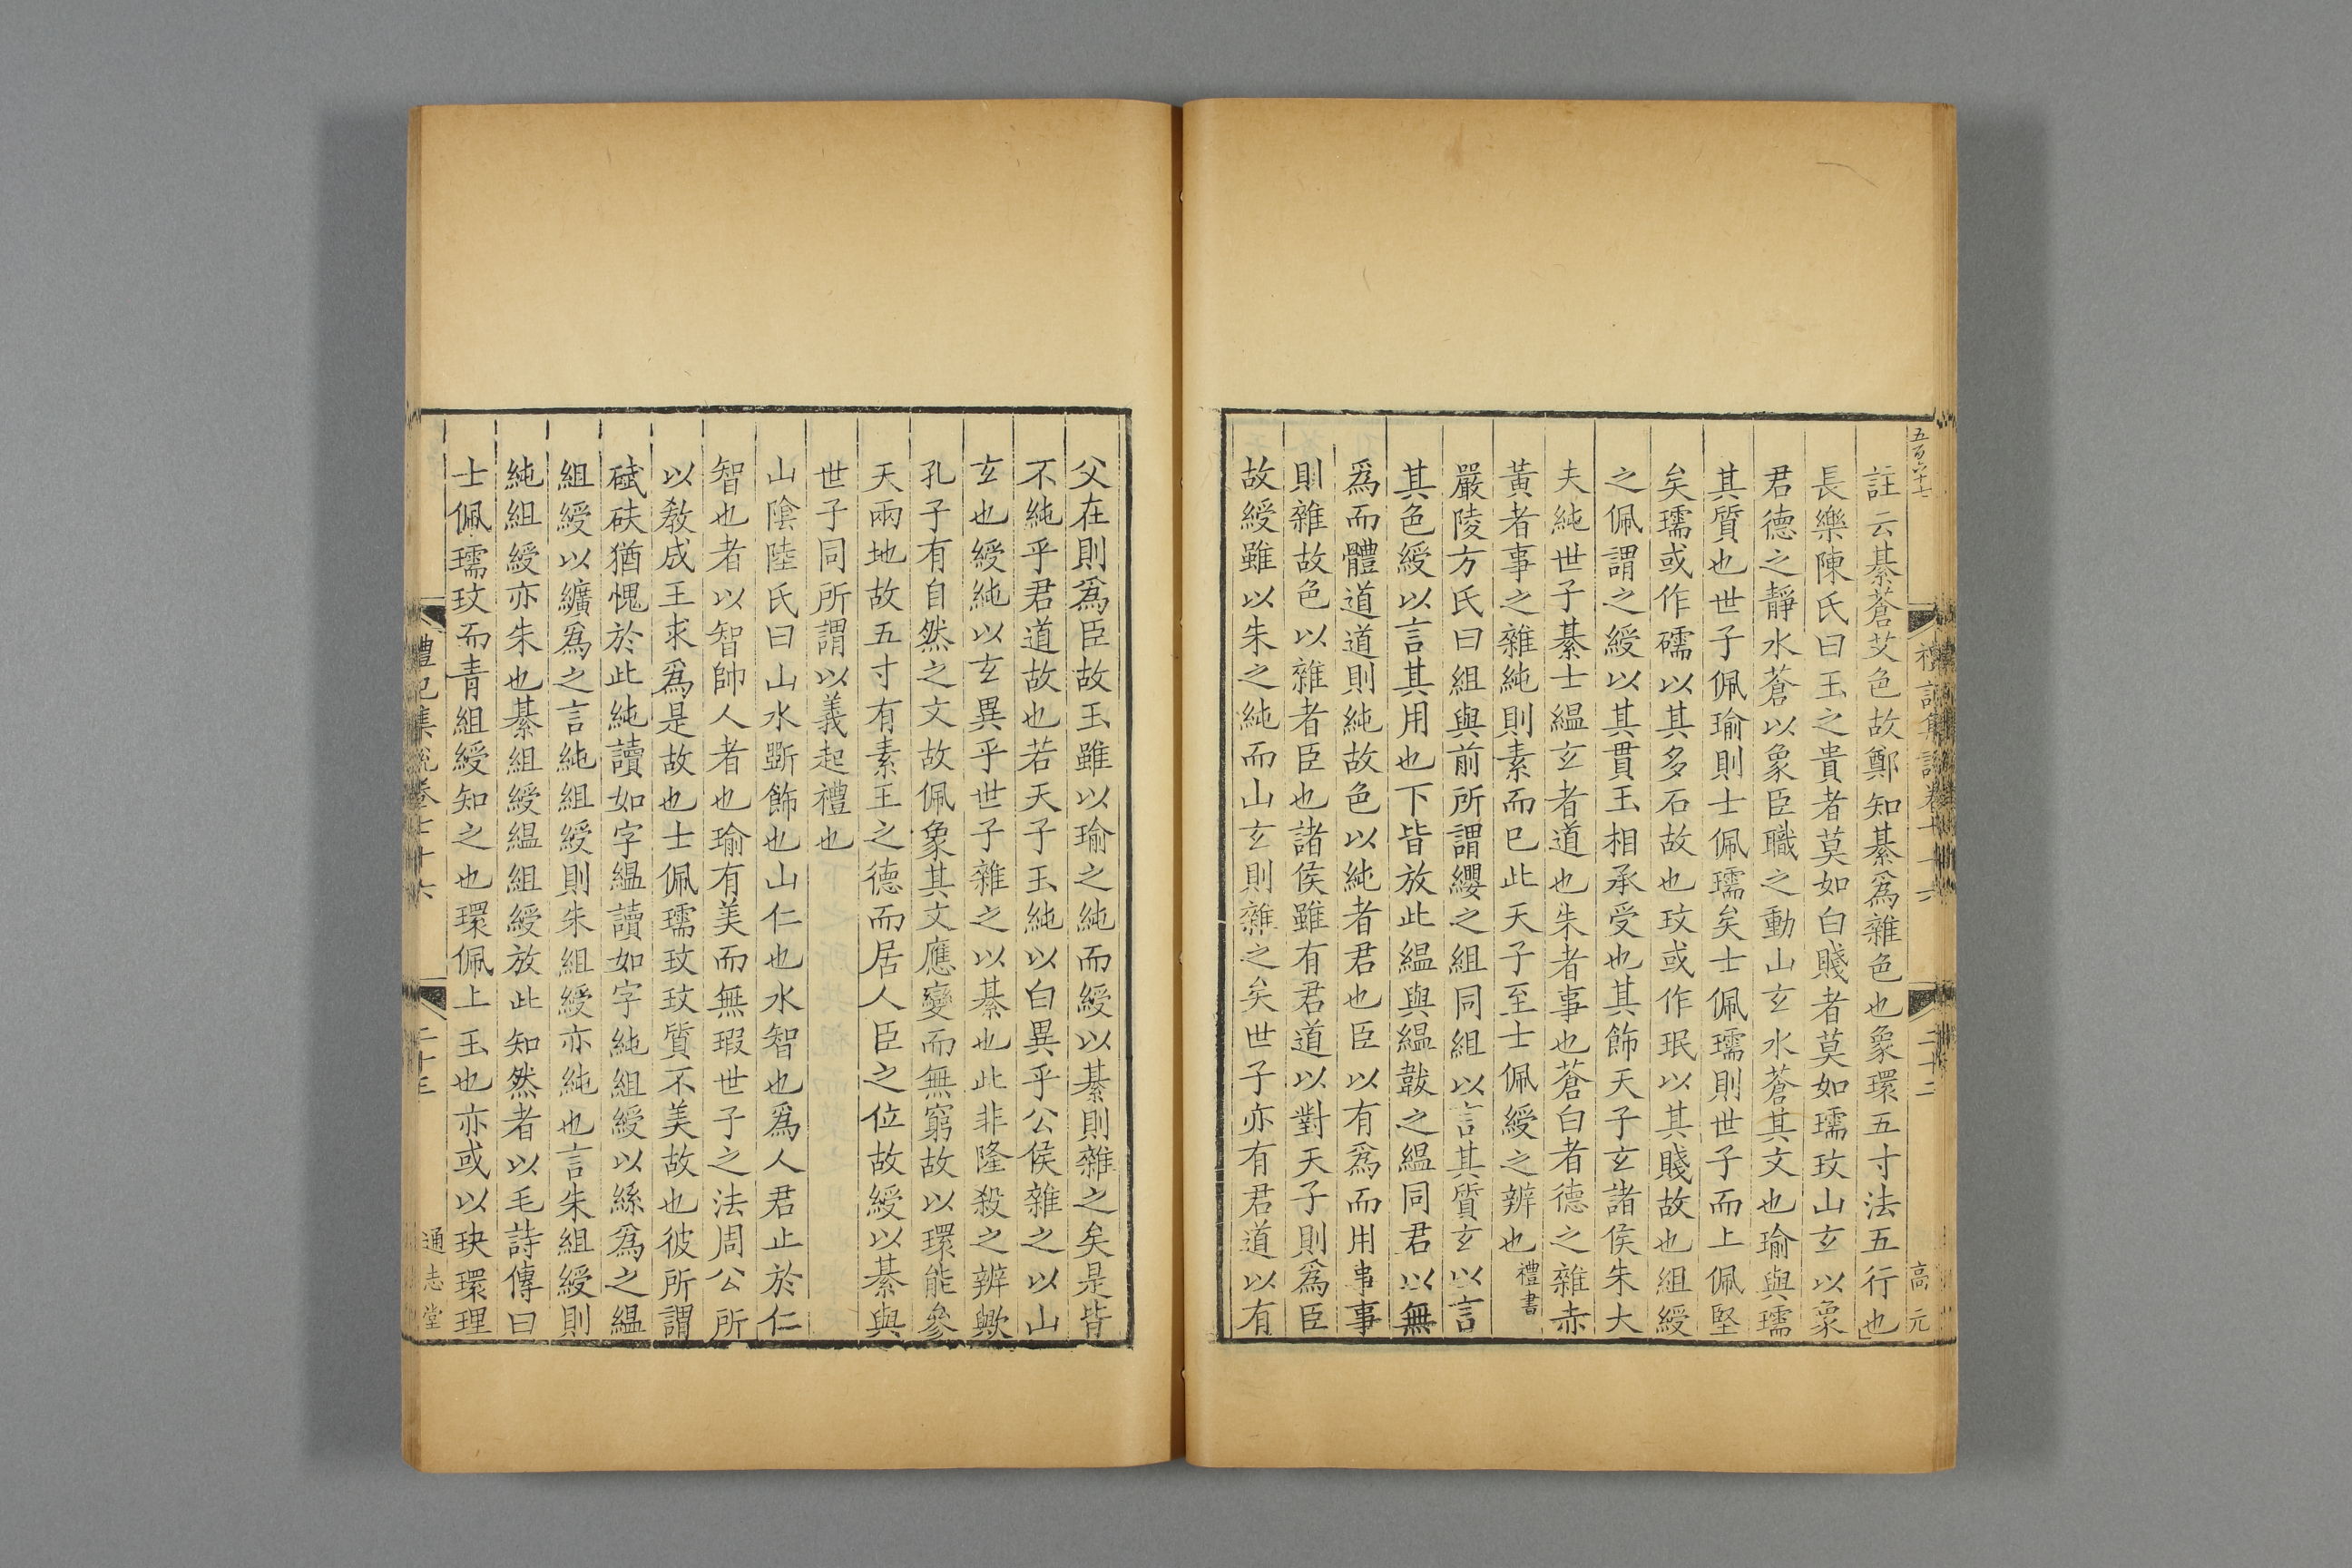 五百六十七
禮記集說卷七十六
二十二
高元
註云綦蒼艾色故鄭知綦爲雜色也象環五寸法五行也
長樂陳氏曰玉之貴者莫如白賤者莫如瓀玟山玄以象
君德之靜水蒼以象臣職之動山玄水蒼其文也瑜與瓀
其質也世子佩瑜則士佩瓀矣士佩瓀則世子而上佩堅
矣瓀或作礝以其多石故也玟或作珉以其賤故也組綬
之佩謂之綬以其貫玉相承受也其飾天子玄諸侯朱大
夫純世子綦士縕玄者道也朱者事也蒼白者德之雜赤
黃者事之雜純則素而已此天子至士佩綬之辨也禮書
嚴陵方氏曰組與前所謂纓之組同組以言其質玄以言
其色綬以言其用也下皆放此縕與縕韍之縕同君以無
爲而體道道則純故色以純者君也臣以有爲而用事事
則雜故色以雜者臣也諸侯雖有君道以對天子則爲臣
故綬雖以朱之純而山玄則雜之矣世子亦有君道以有
父在則爲臣故玉雖以瑜之純而綬以綦則雜之矣是皆
不純乎君道故也若天子玉純以白異乎公侯雜之以山
玄也綬純以玄異乎世子雜之以綦也此非隆殺之辨歟
孔子有自然之文故佩象其文應變而無窮故以環能參
天兩地故五寸有素王之德而居人臣之位故綬以綦與
世子同所謂以義起禮也
山陰陸氏曰山水斲飾也山仁也水智也爲人君止於仁
智也者以智帥人者也瑜有美而無瑕世子之法周公所
以敎成王求爲是故也士佩瓀玟玟質不美故也彼所謂
碔砆猶愧於此純讀如字縕讀如字純組綬以絲爲之縕
組綬以纊爲之言純組綬則朱組綬亦純也言朱組綬則
純組綬亦朱也綦組綬縕組綬放此知然者以毛詩傳曰
士佩瓀玟而青組綬知之也環佩上玉也亦或以玦環理
禮記集說卷七十六
二十三
通志堂